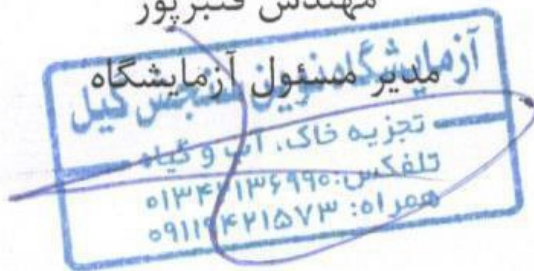 مهندس قنبرپور
مدیر مسئول آزمایشگاه
آزمایشگاه نوین سنجش گیل
تجزیه خاک، آب و گیاه
تلفکس: ۰۱۳۴۲۱۳۶۹۹۰
همراه: ۰۹۱۱۹۴۲۱۵۷۳